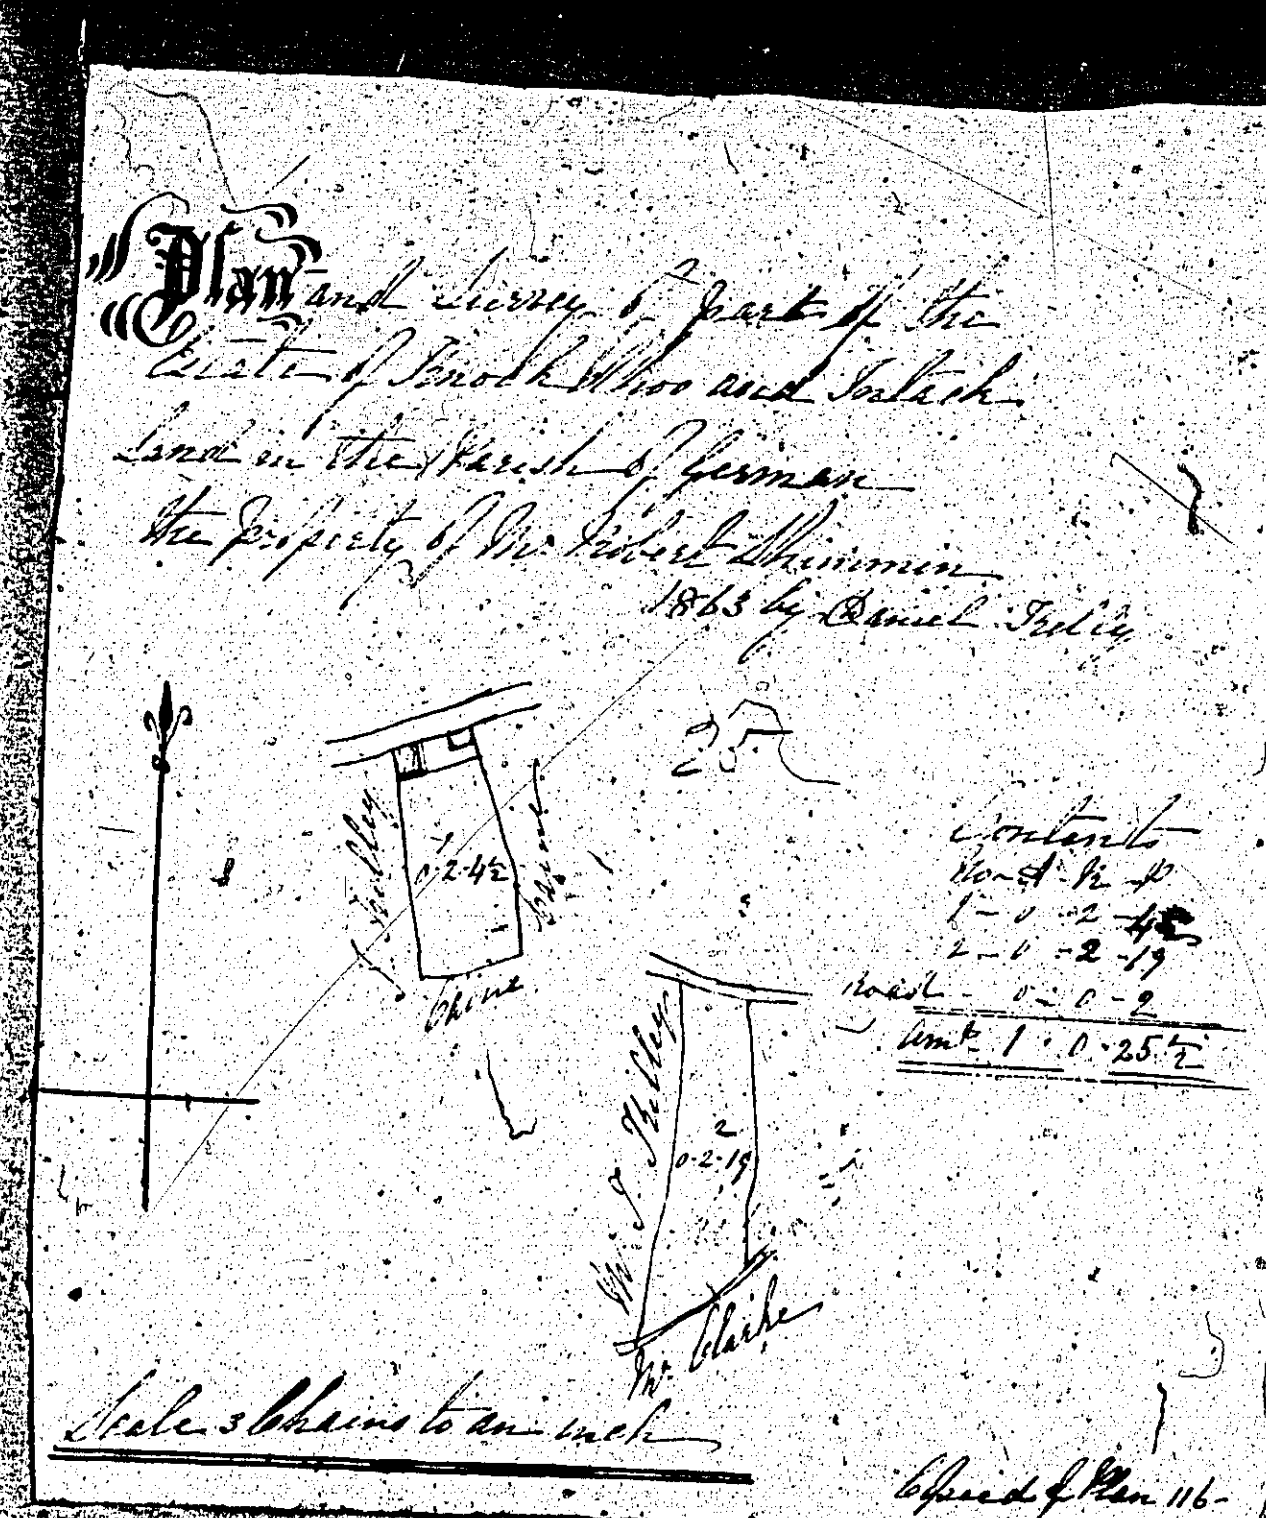 Plan and Survey of part of the
Estate of Knock Whoo and Intack
Land in the Parish of German
the property of Mr. Robert Shimmin
1863 by Daniel
25
Killey
1
0-2-4½
Contents
No - A - R - P
1 - 0 - 2 - 4½
2 - 0 - 2 - 19
Road - 0 - 0 - 2
Amt. 1 - 0 - 25½
W. T. Killey
2
0-2-19
Mr. Clarke
Scale 3 Chains to an inch
Copied of Plan 116